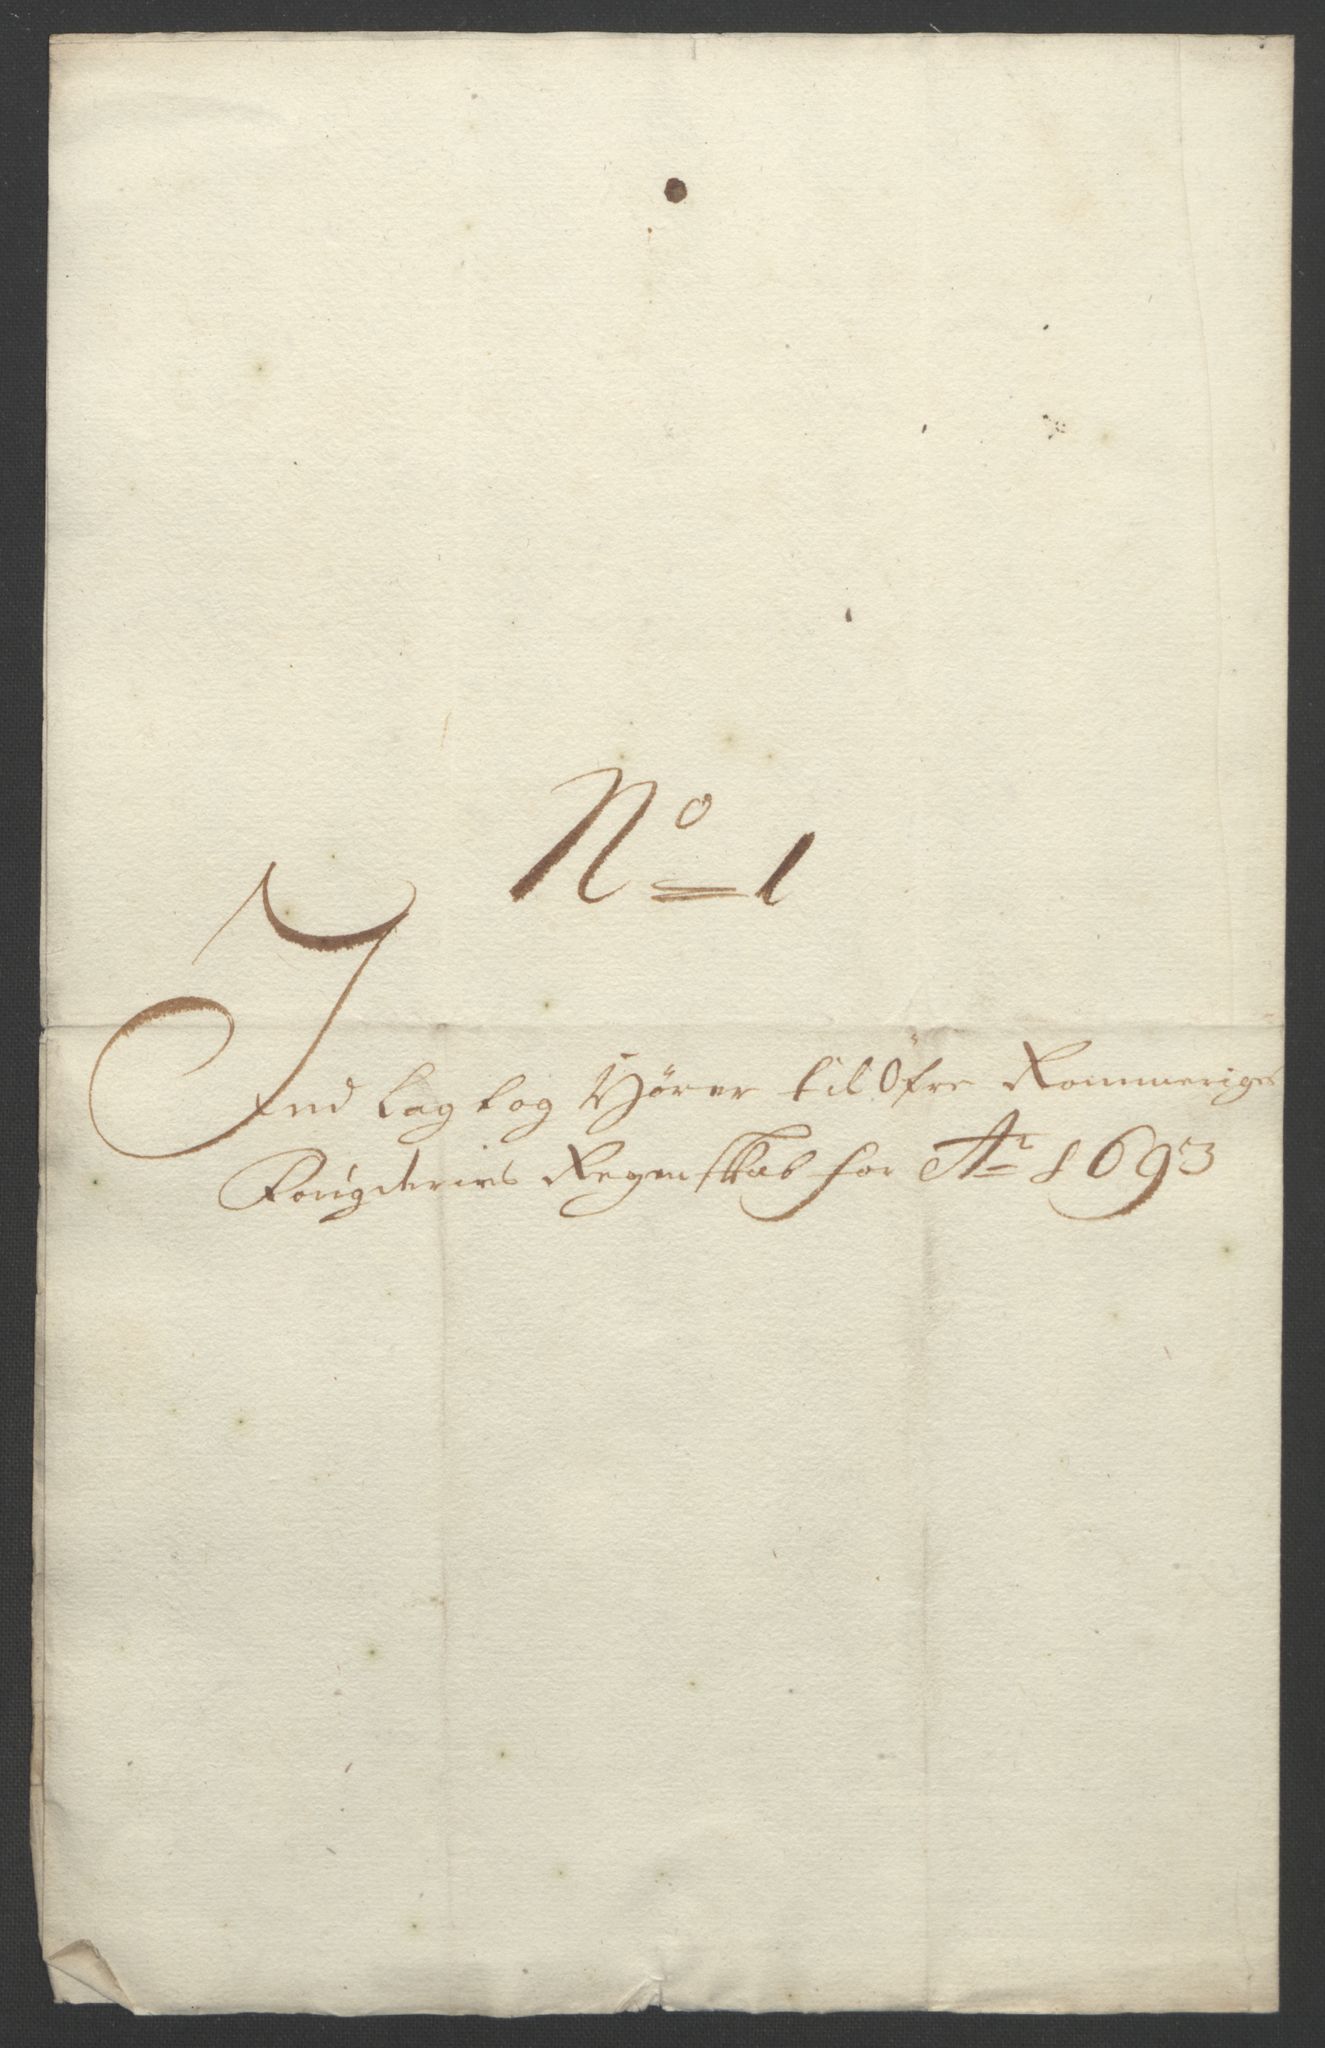 No 1
Ind Lag tog Hører til Øfre Rommeriges
Fougderies Regenskab for Ao 1693